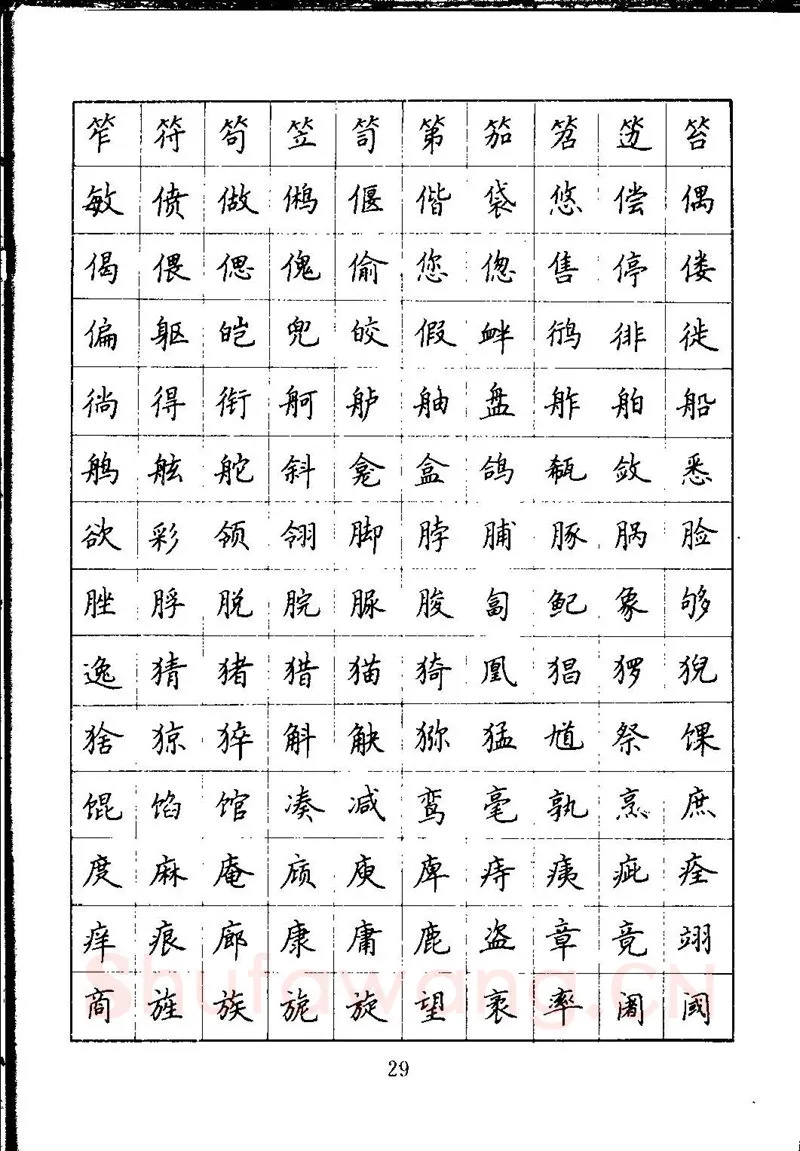 笮 符 笱 笠 笥 第 笳 笤 笾 笞
敏 偾 做 鸺 偃 偕 袋 悠 偿 偶
偈 偎 偲 傀 偷 您 偬 售 停 偻
偏 躯 皑 兜 皎 假 衅 鸻 徘 徙
徜 得 衔 舸 舻 舳 盘 舴 舶 船
鸼 舷 舵 斜 龛 盒 鸽 瓻 敛 悉
欲 彩 领 翎 脚 脖 脯 豚 脶 脸
脞 脬 脱 脘 脲 朘 匐 鱾 象 够
逸 猜 猪 猎 猫 猗 凰 猖 猡 猊
猞 猄 猝 斛 觖 猕 猛 馗 祭 馃
馄 馅 馆 凑 减 鸾 毫 孰 烹 庶
度 麻 庵 庼 庾 庳 痔 痍 疵 痊
痒 痕 廊 康 庸 鹿 盗 章 竟 翊
商 旌 族 旎 旋 望 袤 率 阇 阈
29
Shufawang.CN